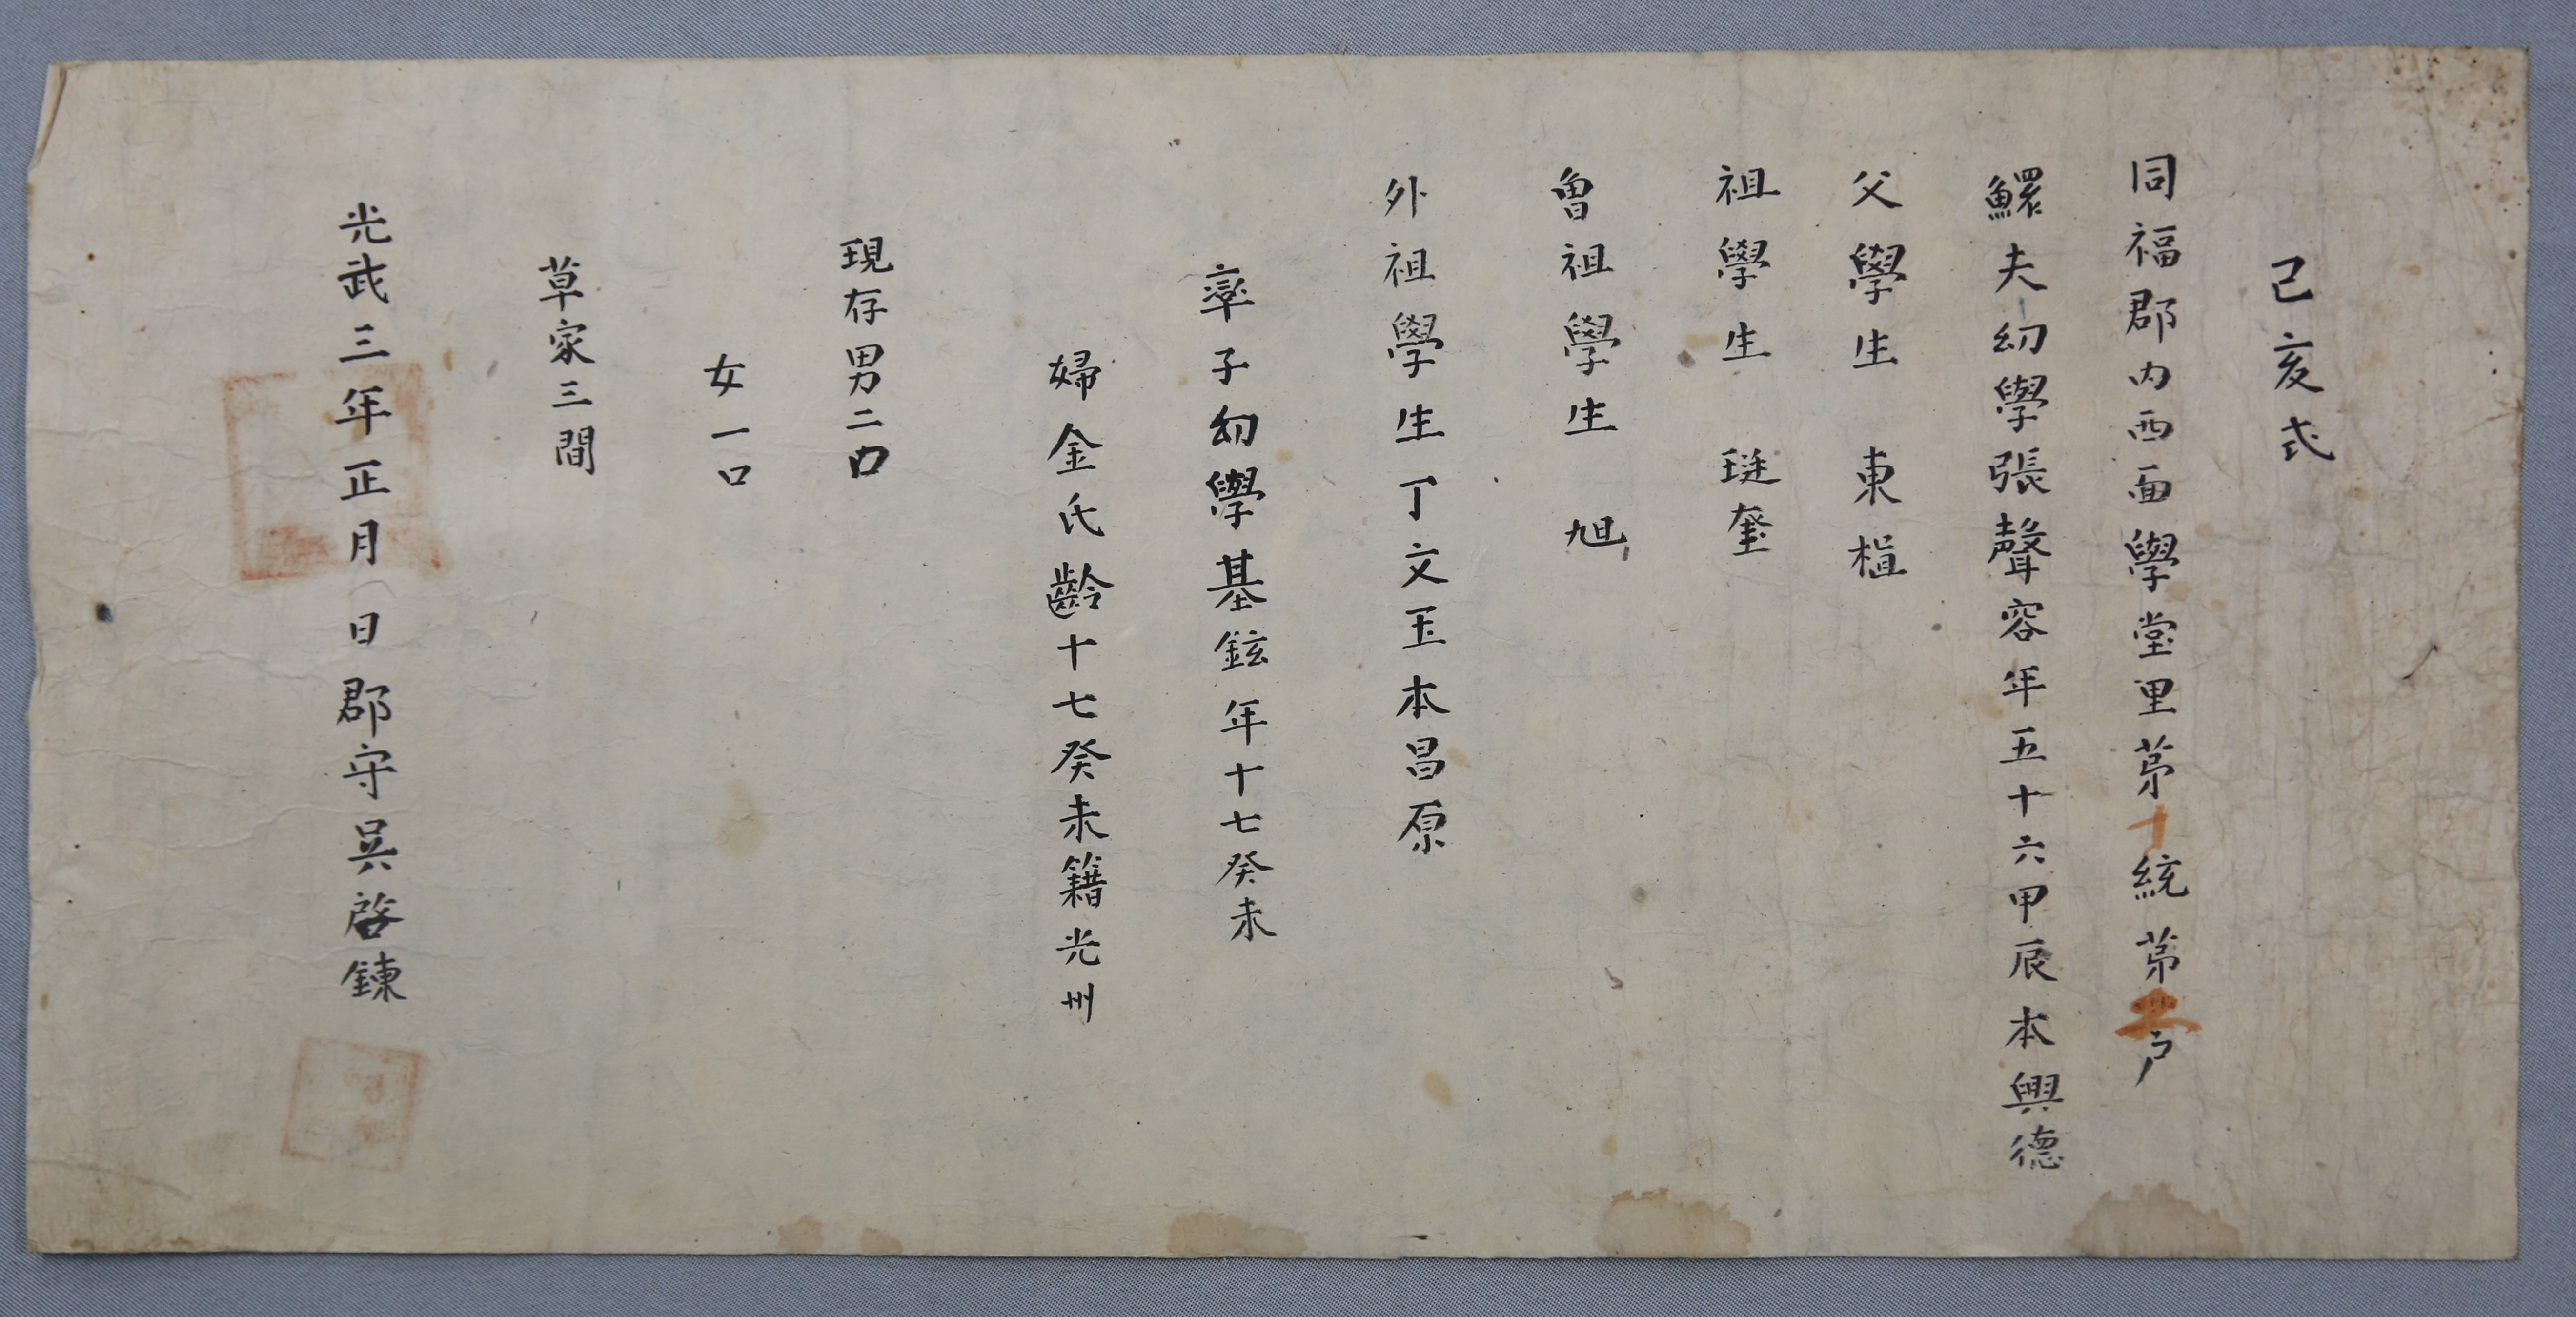 己亥式
同福郡内西面學堂里苐十統苐戶
鰥夫幼學張聲容年五十六甲辰本興德
父學生 東楦
祖學生 璡奎
曾祖學生 旭
外祖學生丁文玉本昌原
率子幼學基鉉年十七癸未
婦金氏齡十七癸未籍光州
現存男二口
女一口
草家三間
光武三年正月 日郡守吳啓鍊